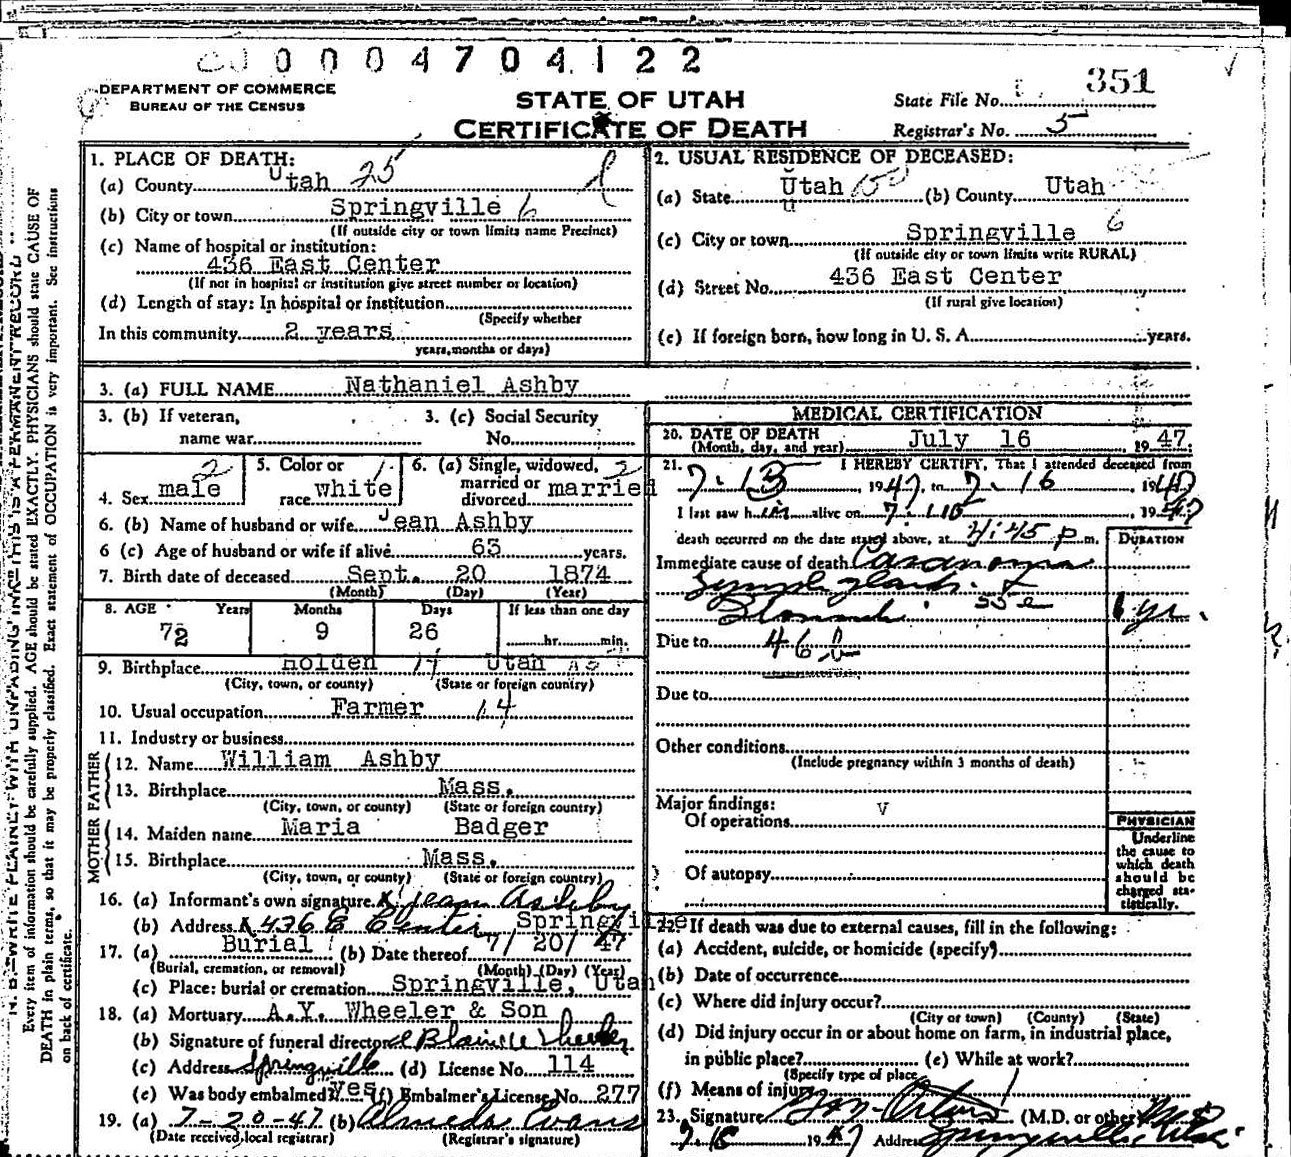 0 0 0 4 7 0 4 1 2 2
351
DEPARTMENT OF COMMERCE
BUREAU OF THE CENSUS
STATE OF UTAH
CERTIFICATE OF DEATH
State File No.
Registrar's No. 5
1. PLACE OF DEATH:
(a) County Utah 25
(b) City or town Springville 6
(If outside city or town limits name Precinct)
(c) Name of hospital or institution:
436 East Center
(If not in hospital or institution give street number or location)
(d) Length of stay: In hospital or institution
(Specify whether
In this community 2 years
years, months or days)
2. USUAL RESIDENCE OF DECEASED:
(a) State Utah (b) County Utah
(c) City or town Springville 6
(If outside city or town limits write RURAL)
(d) Street No. 436 East Center
(If rural give location)
(e) If foreign born, how long in U. S. A. years.
3. (a) FULL NAME Nathaniel Ashby
3. (b) If veteran, 3. (c) Social Security
name war No.
4. Sex male 2 5. Color or race white 1 6. (a) Single, widowed, married or divorced married 2
6. (b) Name of husband or wife Jean Ashby
6 (c) Age of husband or wife if alive 63 years.
7. Birth date of deceased Sept. 20 1874
(Month) (Day) (Year)
8. AGE Years Months Days If less than one day
72 9 26 hr. min.
9. Birthplace Holden Utah
(City, town, or county) (State or foreign country)
10. Usual occupation Farmer 14
11. Industry or business
FATHER
12. Name William Ashby
13. Birthplace Mass.
(City, town, or county) (State or foreign country)
MOTHER
14. Maiden name Maria Badger
15. Birthplace Mass.
(City, town, or county) (State or foreign country)
16. (a) Informant's own signature x Jean Ashby
(b) Address x 436 E Center Springville
17. (a) Burial (b) Date thereof 7/ 20/ 47
(Burial, cremation, or removal) (Month) (Day) (Year)
(c) Place: burial or cremation Springville, Utah
18. (a) Mortuary A.Y. Wheeler & Son
(b) Signature of funeral director Blaine Wheeler
(c) Address Springville (d) License No. 114
(e) Was body embalmed? yes (f) Embalmer's License No. 277
19. (a) 7-20-47 (b) Almeda Evans
(Date received local registrar) (Registrar's signature)
MEDICAL CERTIFICATION
20. DATE OF DEATH July 16 1947.
(Month, day, and year)
21. I HEREBY CERTIFY, That I attended deceased from
7-13, 1947, to 7-16, 1947
I last saw him alive on 7-16, 1947
death occurred on the date stated above, at 4:45 P m.
DURATION
Immediate cause of death Carcinoma
Lymph glands &
Stomach 55e 1 yr.
Due to 46b
Due to
Other conditions
(Include pregnancy within 3 months of death)
Major findings:
Of operations
Of autopsy
PHYSICIAN
Underline
the cause to
which death
should be
charged sta-
tistically.
22. If death was due to external causes, fill in the following:
(a) Accident, suicide, or homicide (specify)
(b) Date of occurrence
(c) Where did injury occur?
(City or town) (County) (State)
(d) Did injury occur in or about home on farm, in industrial place,
in public place? (e) While at work?
(Specify type of place
(f) Means of injury
23. Signature (M.D. or other)
1947 Address Springville, Utah
N. B.-WRITE PLAINLY WITH UNFADING INK THIS IS A PERMANENT RECORD
Every item of information should be carefully supplied. AGE should be stated EXACTLY. PHYSICIANS should state CAUSE OF
DEATH in plain terms, so that it may be properly classified. Exact statement of OCCUPATION is very important. See instructions
on back of certificate.